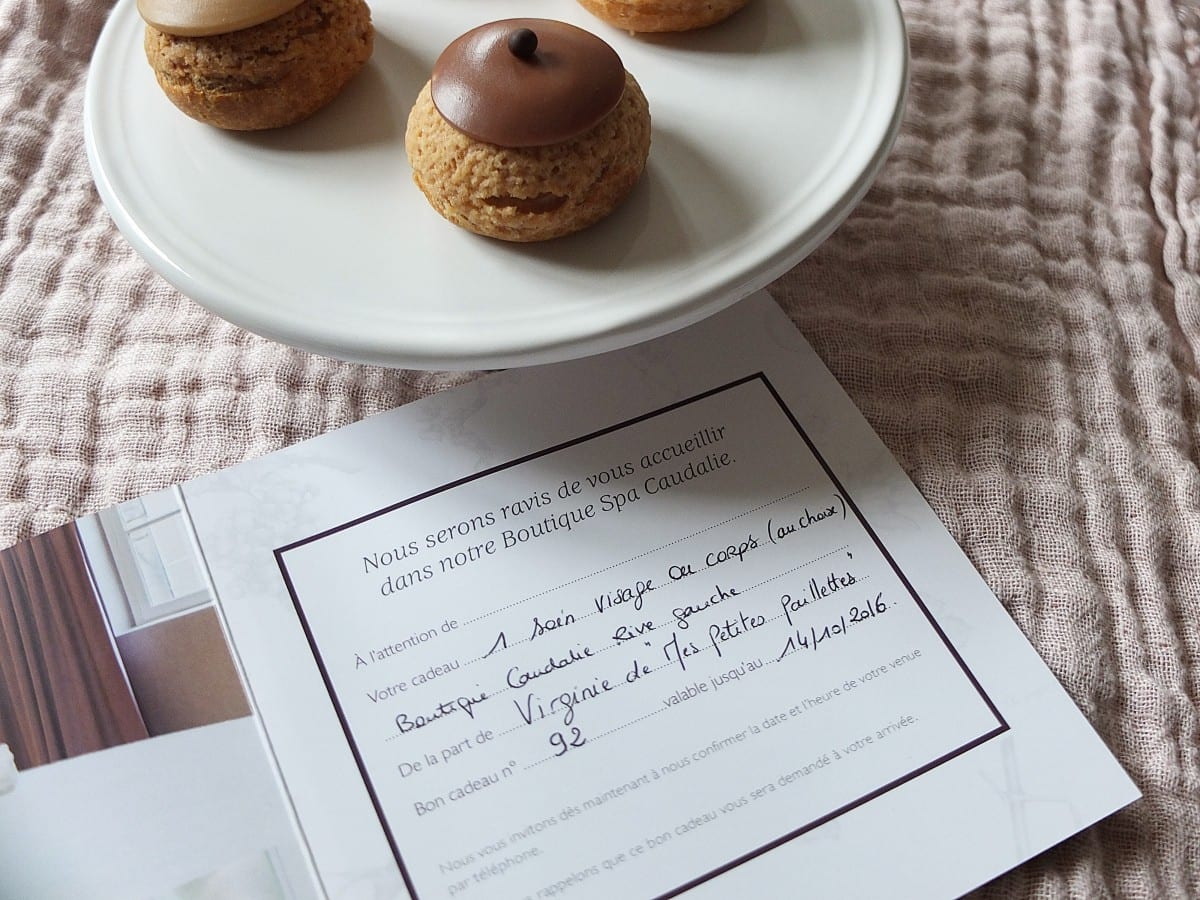 Nous serons ravis de vous accueillir
dans notre Boutique Spa Caudalie.
À l'attention de
Votre cadeau 1 soin visage ou corps (au choix)
Boutique Caudalie Rive gauche
De la part de Virginie de "Mes Petites Paillettes"
Bon cadeau n° 92 valable jusqu'au 14/10/2016
Nous vous invitons dès maintenant à nous confirmer la date et l'heure de votre venue
par téléphone.
rappelons que ce bon cadeau vous sera demandé à votre arrivée.